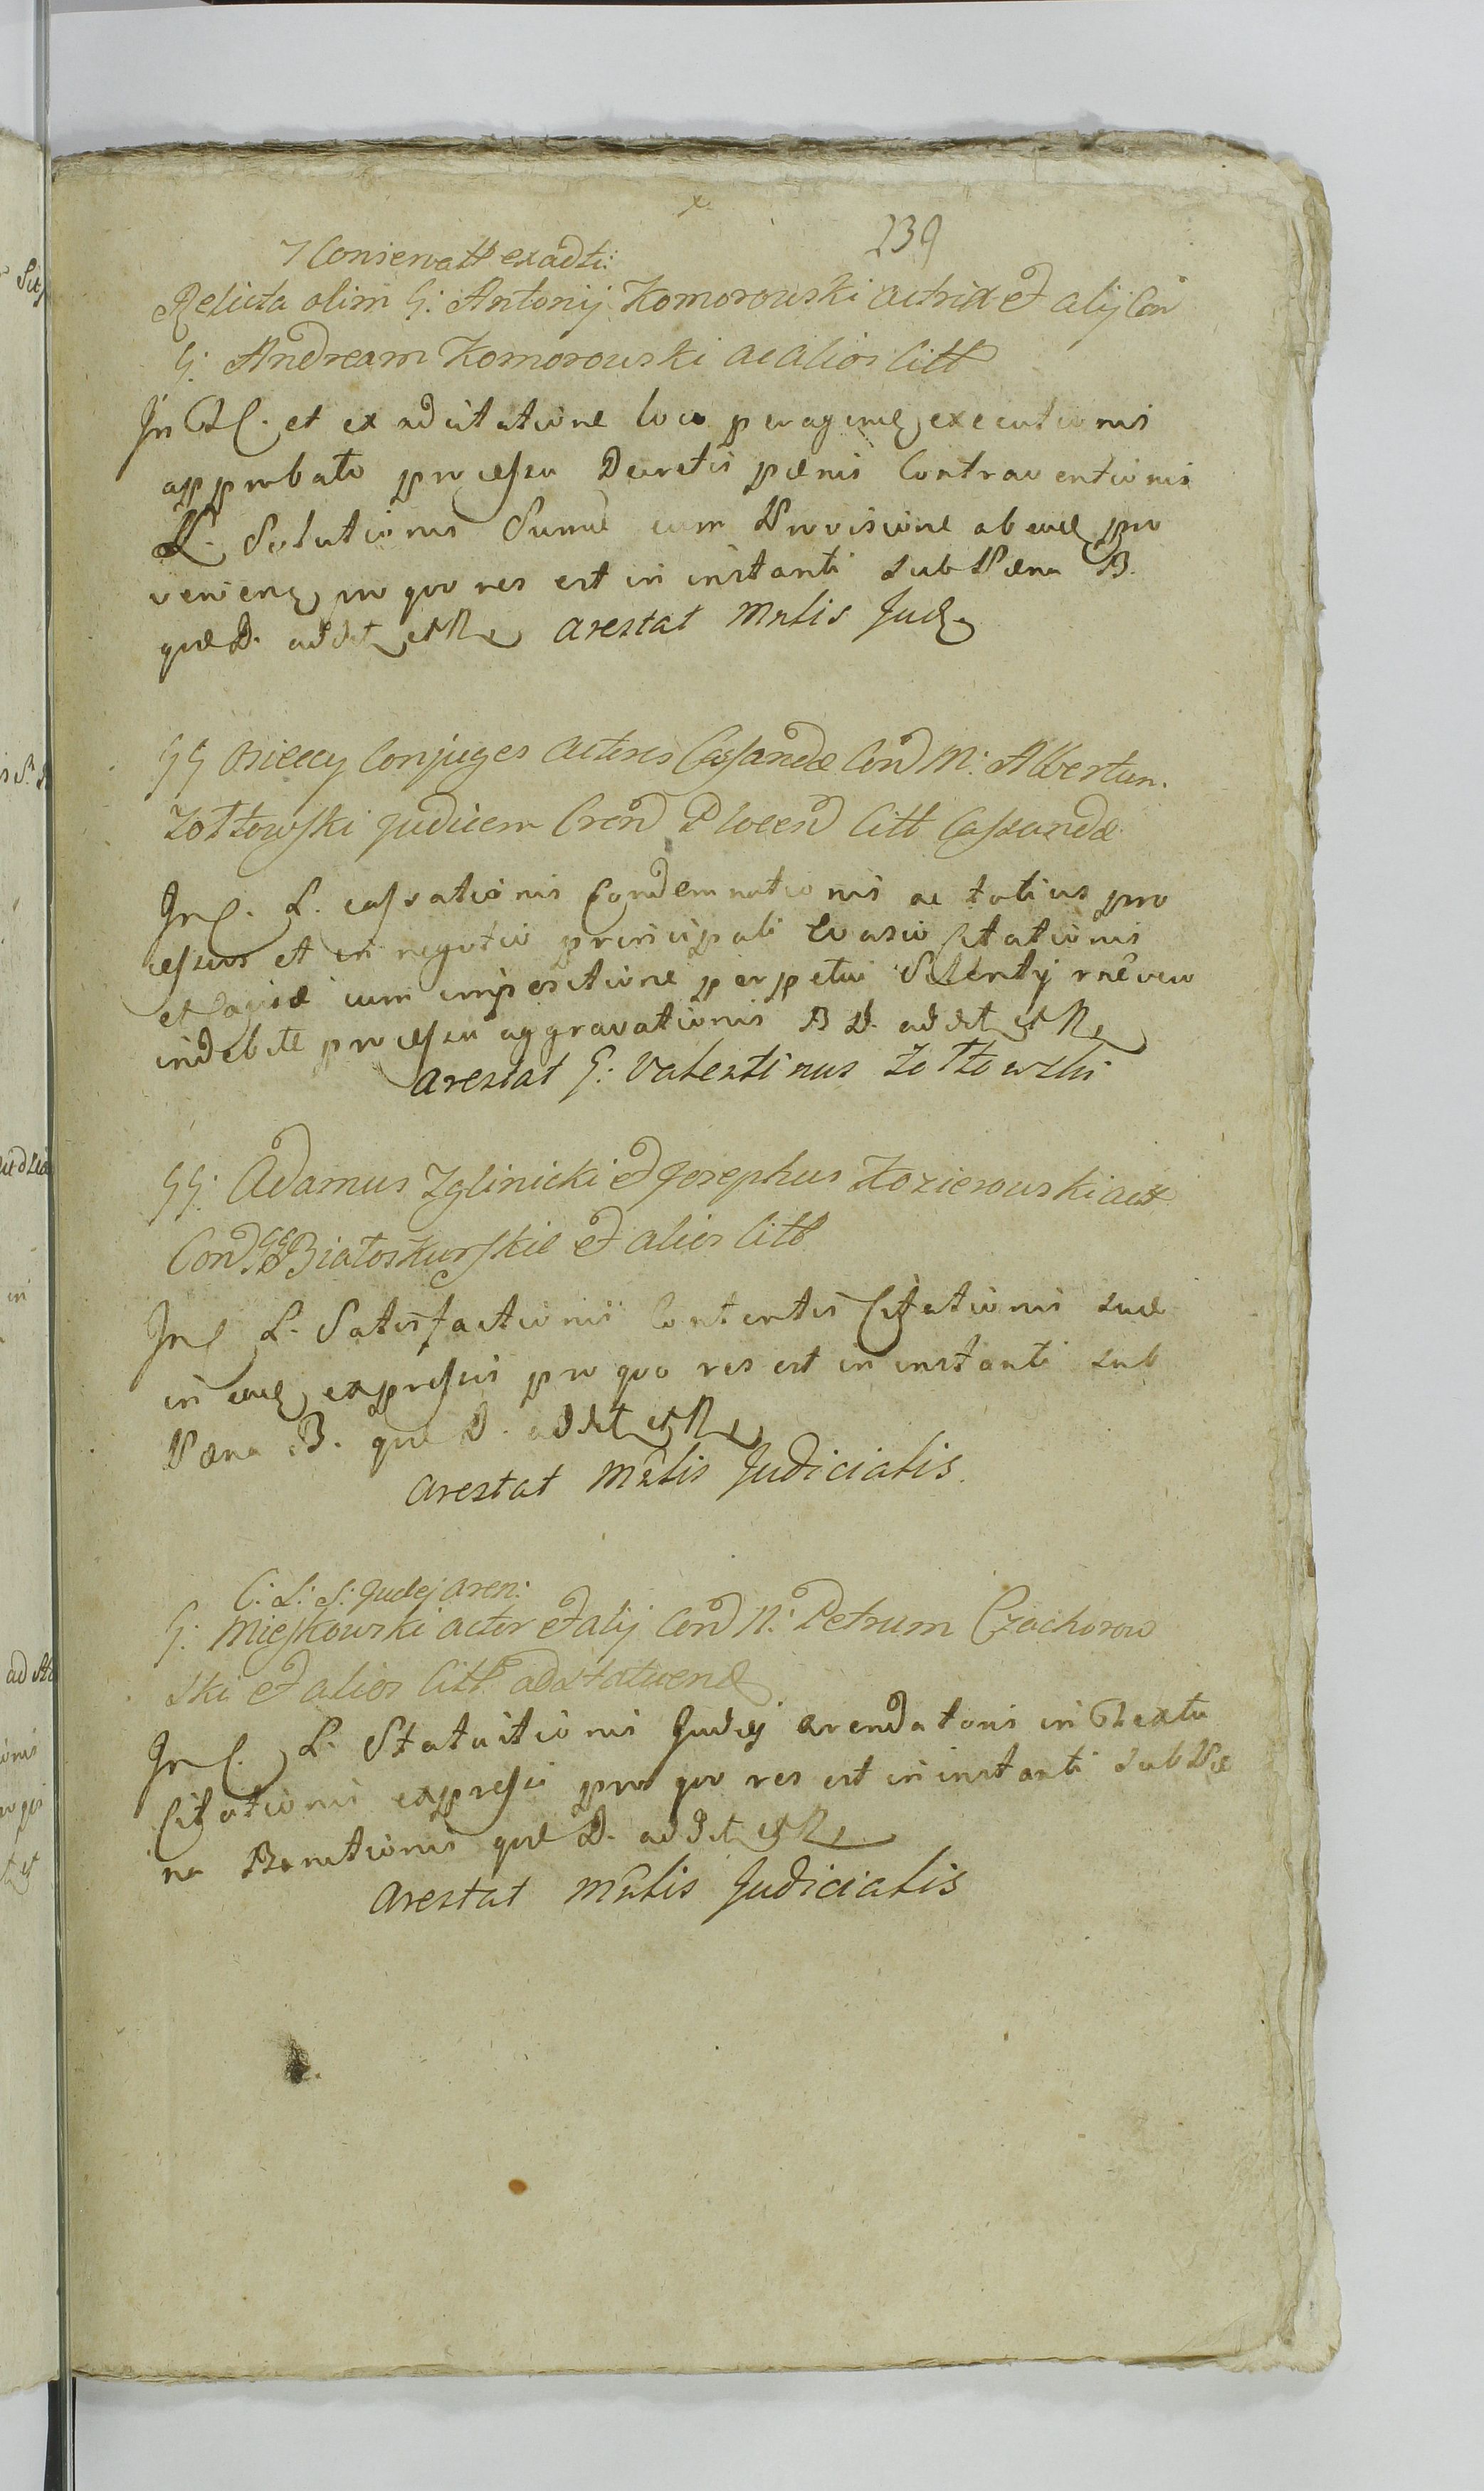 239
7 Conservatt ex adti:
Relicta olim G: Antonij Komorowski actrix et alij Con
G: Andream Komorowski ac alios Citt
In C. et ex adcitatione loco peragend executionis
approbato processu Decretis pœnis Contraventionis
L. Solutionis Sumæ cum Provisione ab eadq pro
venienq pro quo res est in instanti sub Pæna B.
quæ D. addit et R
arestat Mrlis Jud
GG Osieccy Conjuges Actores Cassandæ Cond M: Albertum
Zołtowski Judicem Crend Plocend Citt Cassandæ
In C. L. cassationis Condemnationis ac totius pro
cessus et in negotio principali Evasio Citationis
et Cagiæ cum impositione perpetui Silentij rnê veco
indebite processu aggravationis B D. addit et R
arestat G: Valentinus Zołtowski
GG: Adamus Zglinicki et Josephus Kozierowski actt
Cond GG Białoskurskie et alios Citt
In C L. Satisfactionis Contentis Citationis suæ
in eadq expressis pro quo res est in instanti sub
Pæna B. quæ D. addit et R
arestat Mrlis Judicialis.
C: L: S: Judej Aren:
G: Mieskowski actor et alij Cond M: Petrum Czachorow
ski et alios Citt ad statuend
In C. L. Statuitionis Judej arendatoris in Textu
Citationis expressi pro quo res est in instanti sub Pæ
na Banitionis quæ D. addit et R
arestat Mrlis Judicialis